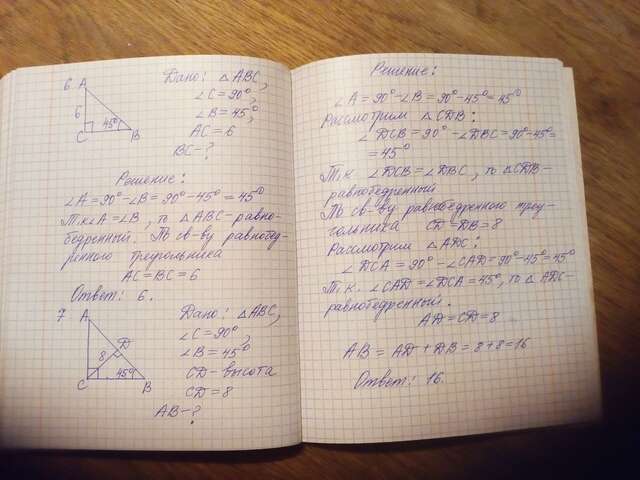 6. A
Дано: △ABC,
∠C=90°,
∠B=45°,
AC=6
BC-?
6
45°
C
B
Решение:
∠A=90°-∠B=90°-45°=45°
Т.к ∠A=∠B, то △ABC-равно-
бедренный. По св-ву равнобед-
ренного треугольника
AC=BC=6
Ответ: 6.
7
A
Дано: △ABC,
∠C=90°,
∠B=45°
CD-высота
CD=8
AB-?
8
D
45°
C
B
Решение:
∠A=90°-∠B=90°-45°=45°
Рассмотрим △CDB:
∠DCB=90°-∠DBC=90°-45°=
=45°
Т.к ∠DCB=∠DBC, то △CDB-
равнобедренный
По св-ву равнобедренного треу-
гольника CD=DB=8
Рассмотрим △ADC:
∠DCA=90°-∠CAD=90°-45°=45°
Т.к. ∠CAD=∠DCA=45°, то △ADC-
равнобедренный.
AD=CD=8
AB=AD+DB=8+8=16
Ответ: 16.